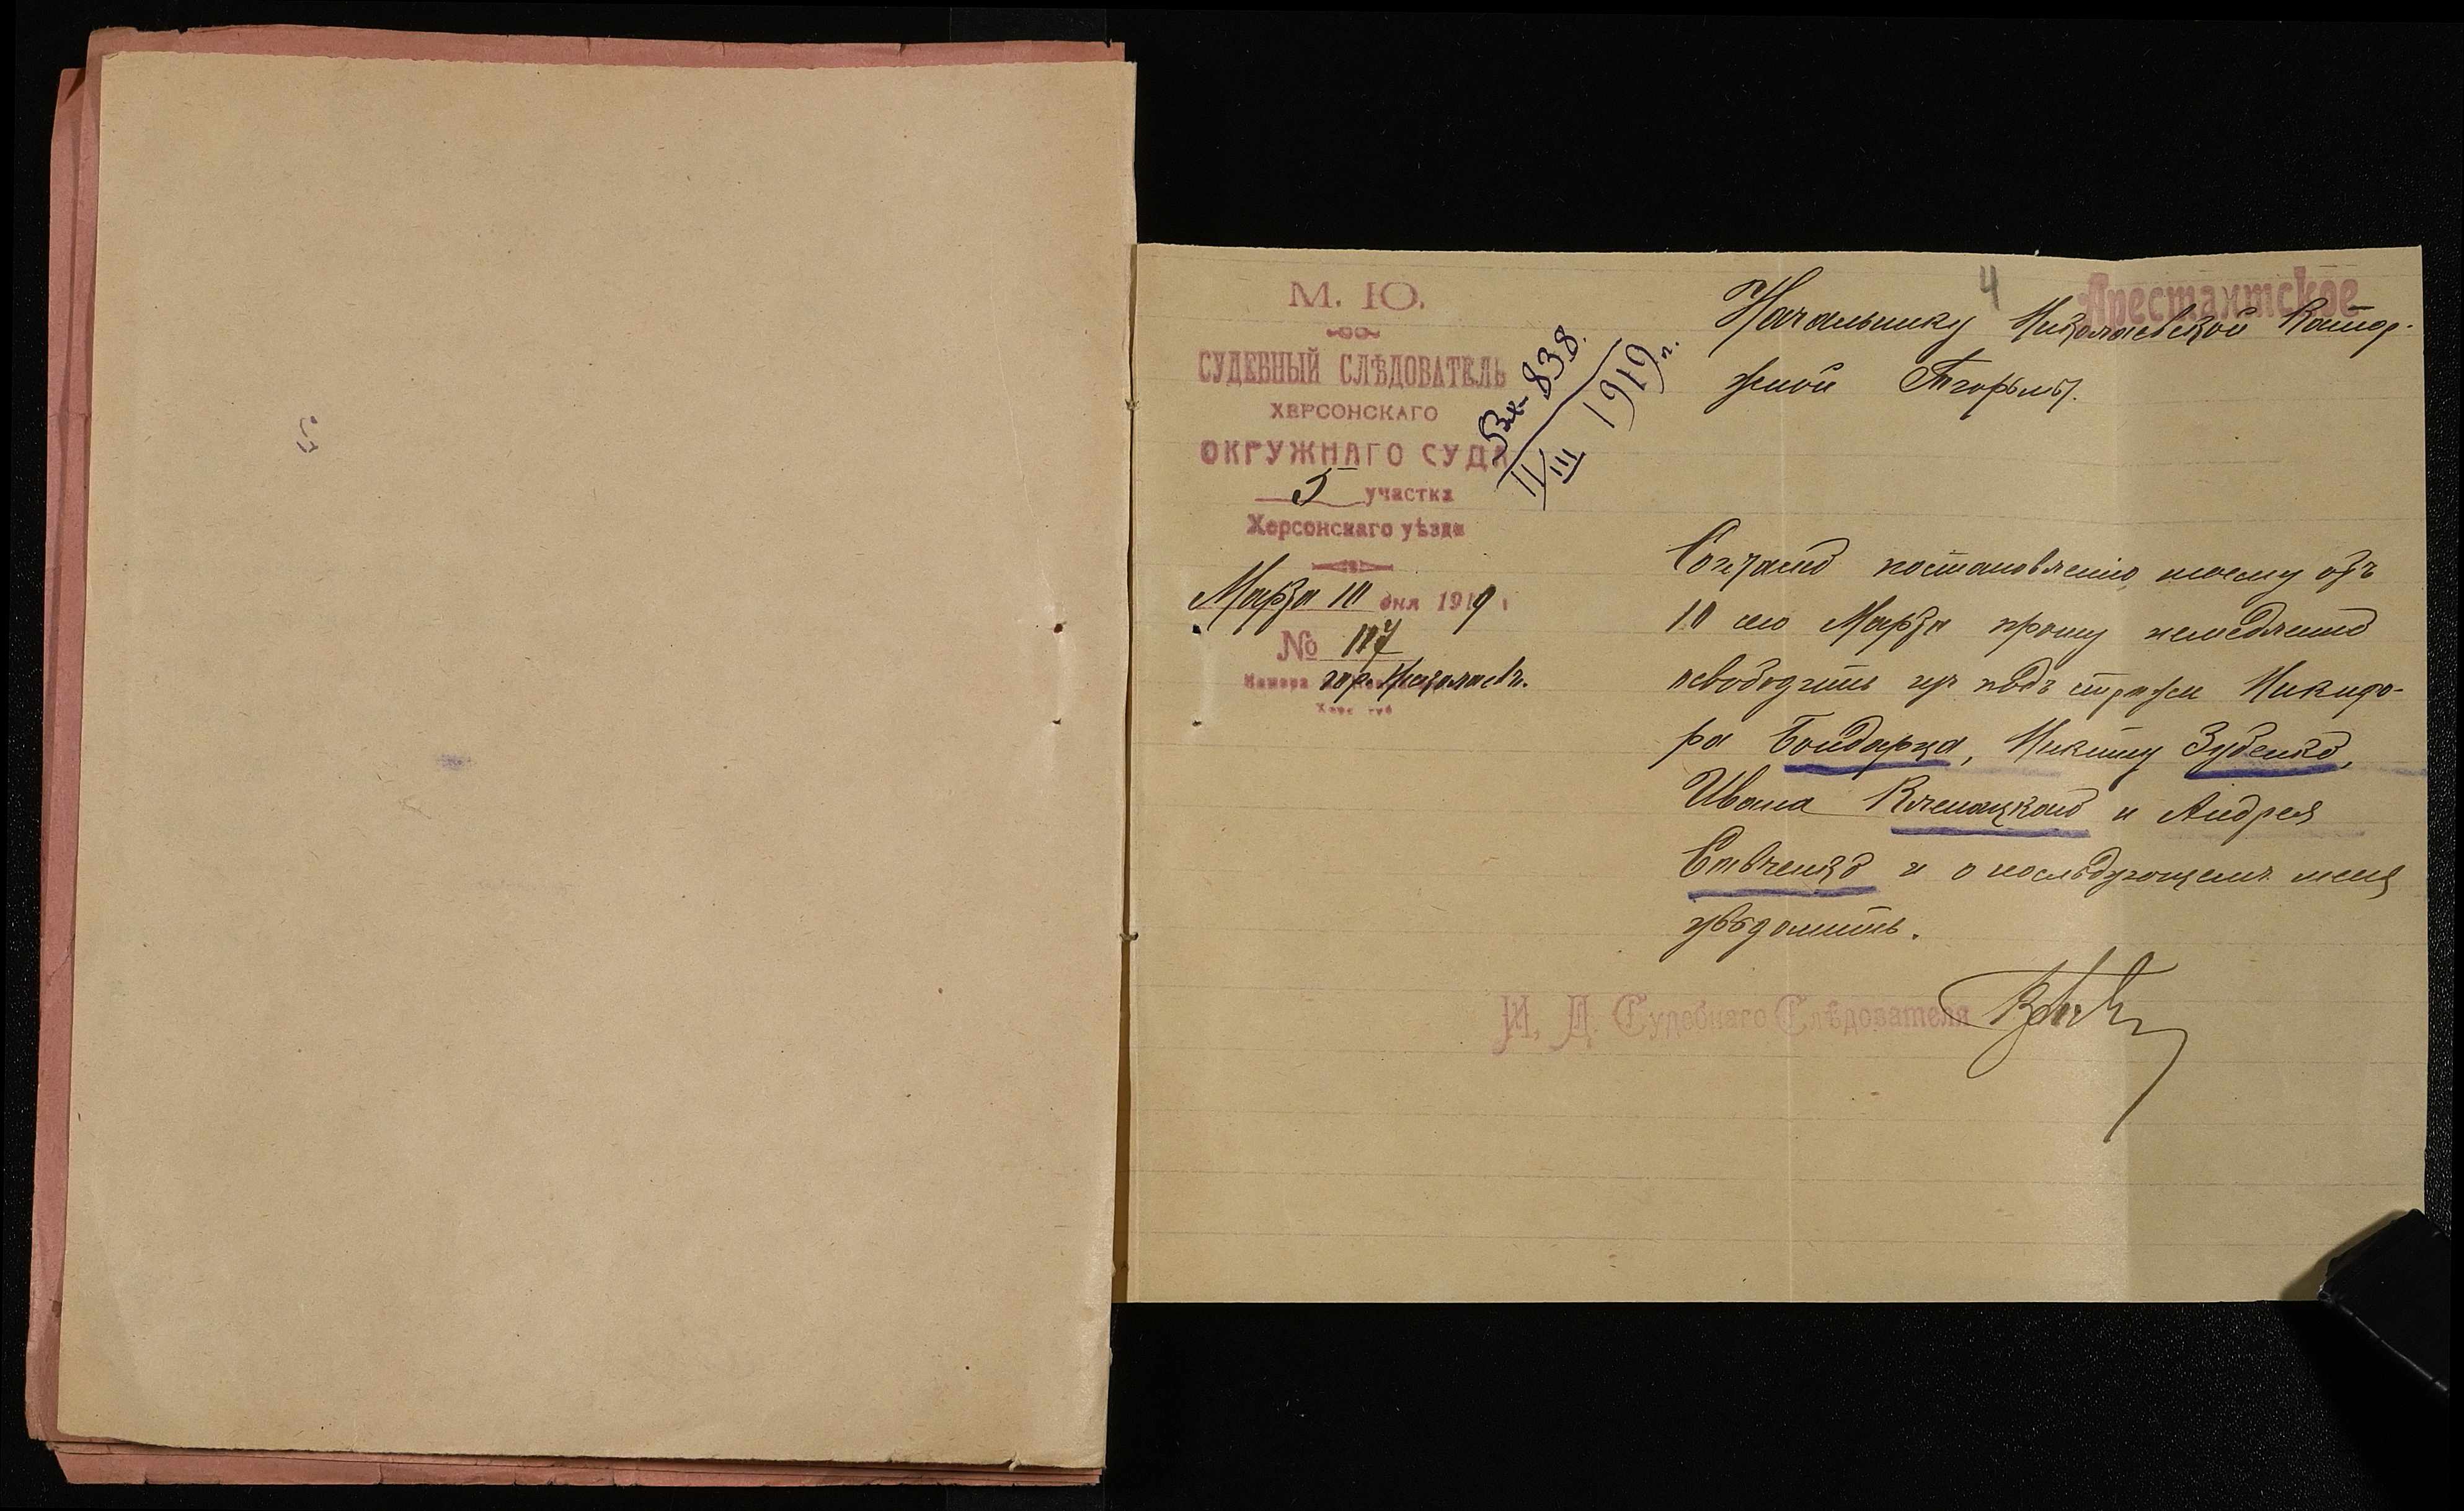 М. Ю.
СУДЕБНЫЙ СЛѢДОВАТЕЛЬ
ХЕРСОНСКАГО
ОКРУЖНАГО СУДА
5 участка
Херсонскаго уѣзда
Марта 10 дня 1919
№ 117
Камера гор. Николаевъ.
Херс губ
Вх. 838.
11/III 1919 г.
4
Арестантское
Начальнику Николаевской Катор-
жной Тюрьмы.
Согласно постановленію моему отъ
10 сего Марта прошу немедленно
освободить изъ подъ стражи Никифо-
ра Бондарца, Никиту Зубенко,
Ивана и Андрея
Савченко и о послѣдующемъ меня
увѣдомить.
И. Д. Судебнаго Слѣдователя